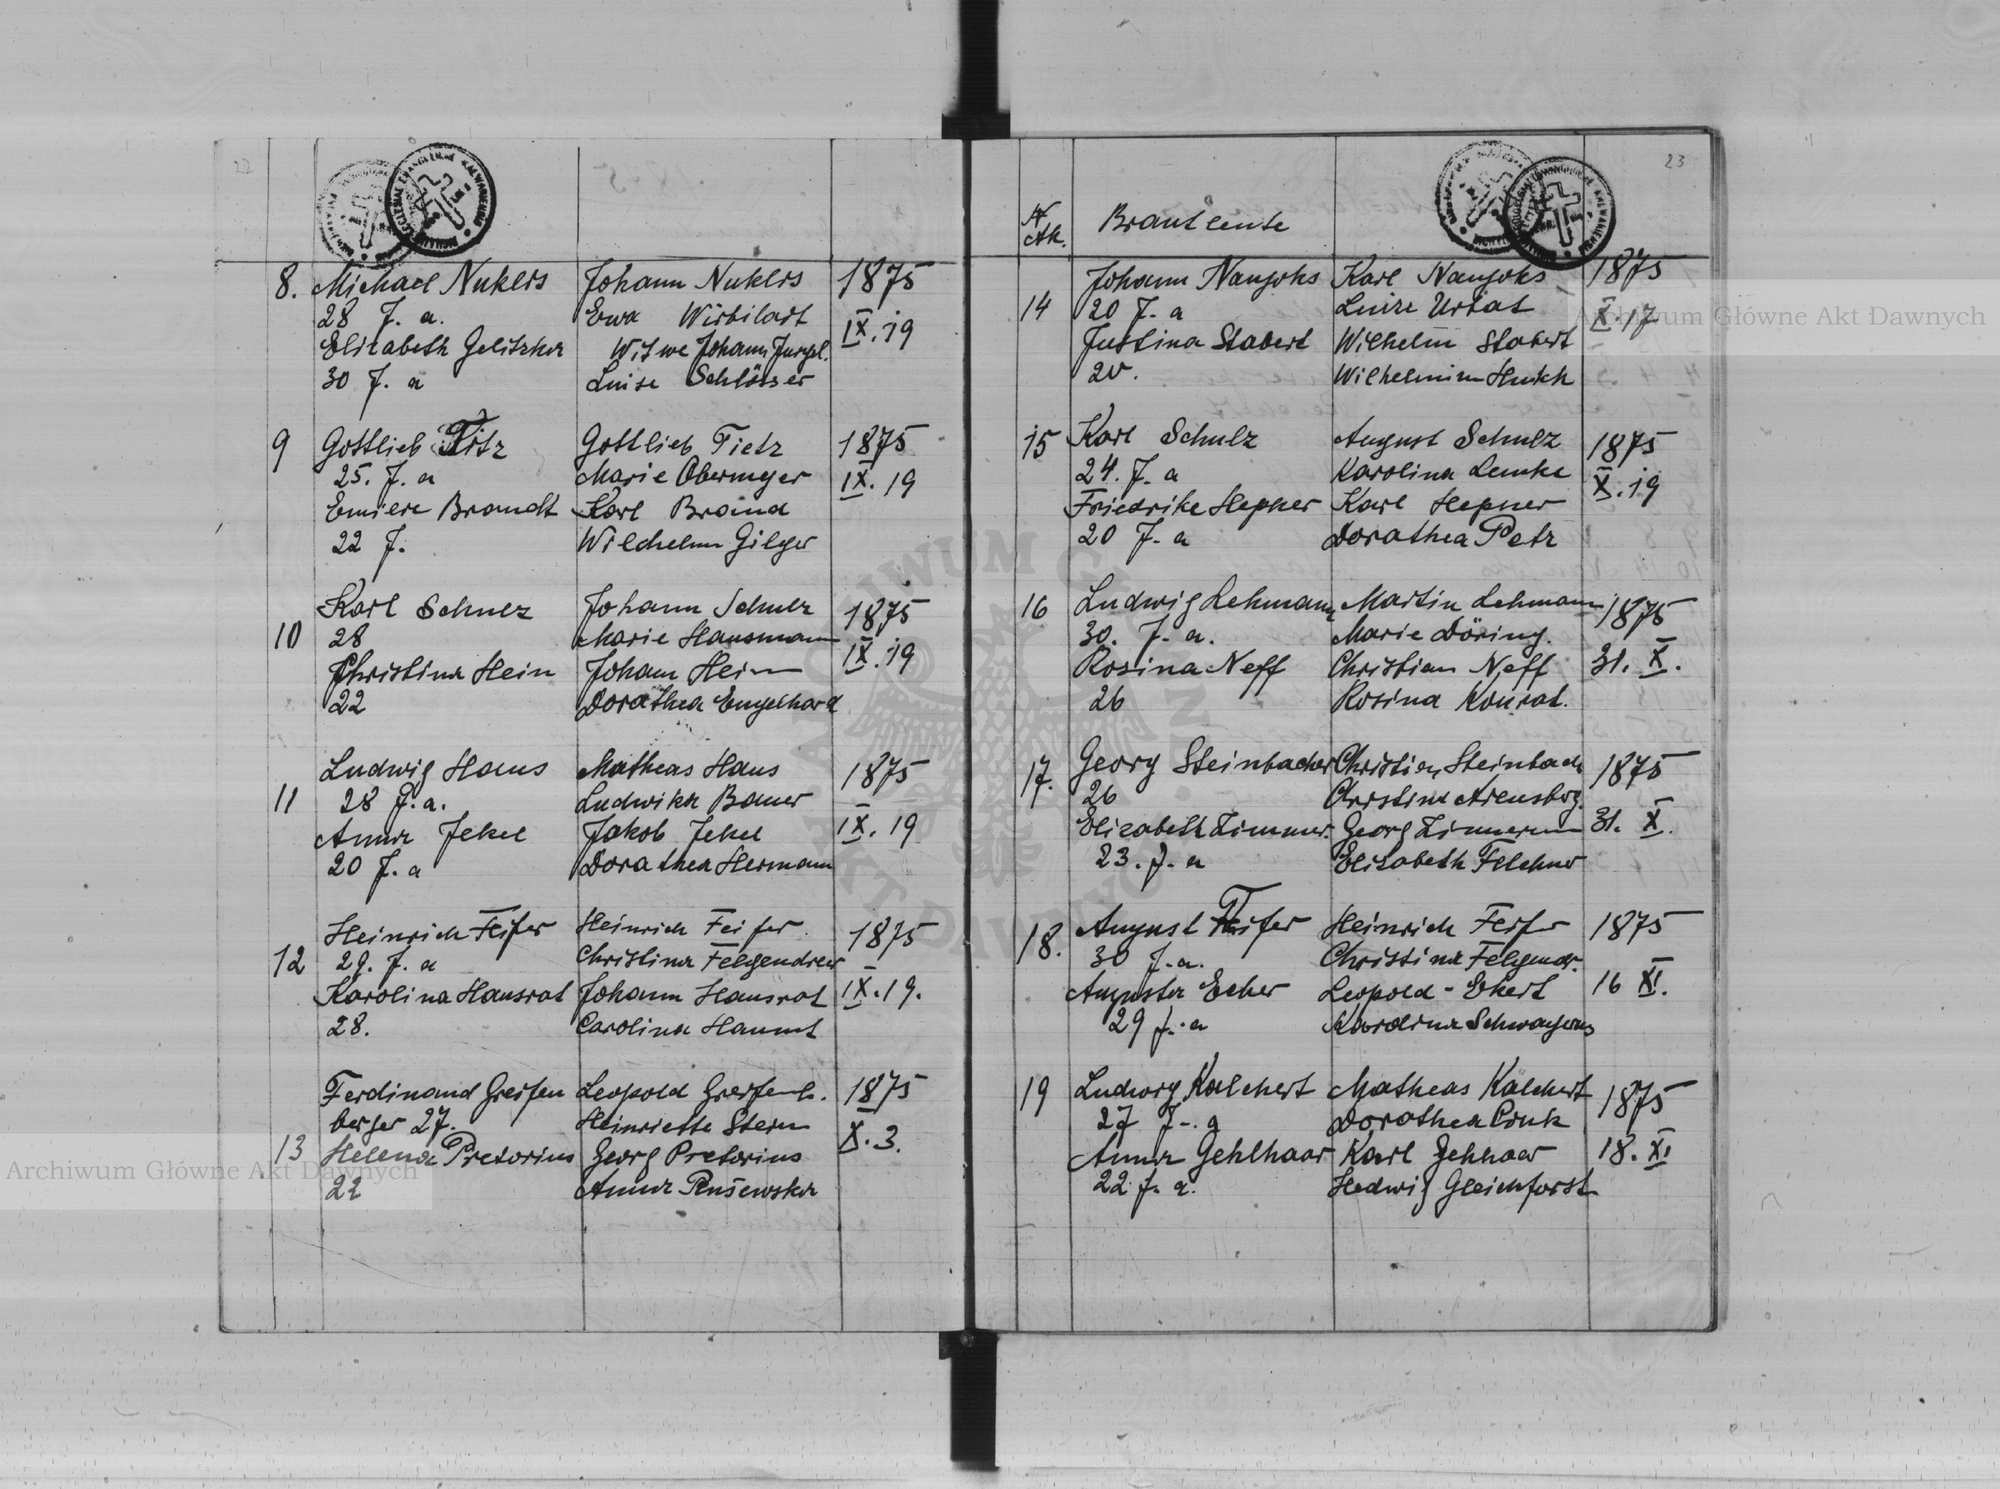 22
8. Michael Nukers Johann Nukers 1875
28 J. a. Ewa Wirbilart IX. 19
Elisabeth Gelitzker Witwe Johann
30 J. a Luise Schlösser
9 Gottlieb Titz Gottlieb Tietz 1875
25. J. a Marie Obermeyer IX. 19
Brandt Karl Brand
22 J. Wilchelm Gilger
Karl Schulz Johann Schulz 1875
10 28 Marie Hausmann IX. 19
Christina Hein Johann Hein
22 Dorathea Engelhard
Ludwig Haus Matheas Haus 1875
11 28 J. a. Ludwika Bauer IX. 19
Anna Jekel Jakob Jekel
20 J. a Dorathea Hermann
Heinrich Feifer Heinrich Feifer 1875
12 29. J. a Christina
Karolina Hausrat Johann Hausrat IX. 19.
28. Carolina
Ferdinand Greifen Leopold Greifenb. 1875
berger 27. Heinriette Stern X. 3.
13 Helena Pretorius Georg Pretorius
22 Anna
23
N Ak. Brautleute
Johann Naujoks Karl Naujoks 1875
14 20 J. a Luise Urbat X. 17
Justina Stabert Wilhelm Stabert
20. Wilhelmina
15 Karl Schulz August Schulz 1875
24. J. a Karolina Lemke X. 19
Friedrike Hepner Karl Hepner
20 J. a Dorathea Petz
16 Ludwig Lehmann Martin Lehmann 1875
30. J. a. Marie Döring.
Rosina Neff Christian Neff 31. X.
26 Rosina Konrat.
17. Georg Steinbacher Christian Steinbach 1875
26 Christina Arensberg.
Elizabeth Zimmer. Georg Zimmerm 31. X.
23. J. a Elisabeth
August Feifer Heinrich Feifer 1875
18. 30 J. a. Christina Felgendr.
Augusta Ecker Leopold - Ekert 16 XI.
29 J. a Karolina
19 Ludwig Kalchert Matheas Kalchert 1875
27 J. a Dorothea
Anna Gehlhaar Karl Gehlhaar 18. XI
22 J. a. Hedwig Gleichforst
Archiwum Główne Akt Dawnych
Archiwum Główne Akt Dawnych
ARCHIWUM GŁÓWNE AKT DAWNYCH